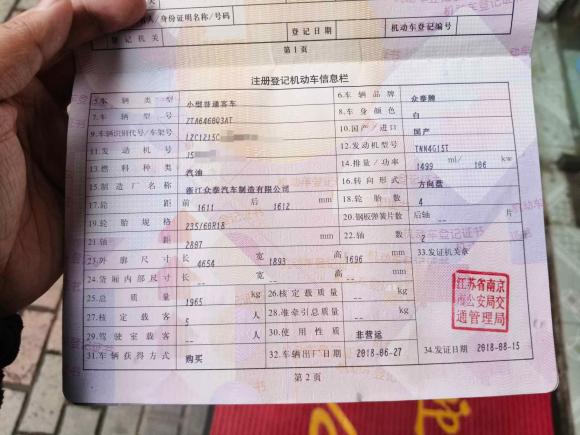 人/身份证明名称/号码
登记机关
登记日期
机动车登记编号
第1页
注册登记机动车信息栏
5.车辆类型 小型普通客车 6.车辆品牌 众泰牌
7.车辆型号 ZTA6460Q3AT 8.车身颜色 白
9.车辆识别代号/车架号 LZC1213C 10.国产/进口 国产
11.发动机号 J5 12.发动机型号 TNN4G15T
13.燃料种类 汽油 14.排量/功率 1499 ml/ 106 kw
15.制造厂名称 浙江众泰汽车制造有限公司 16.转向形式 方向盘
17.轮距 前 1611 后 1612 mm 18.轮胎数 4
19.轮胎规格 235/60R18 20.钢板弹簧片数 后轴 -- 片
21.轴距 2807 mm 22.轴数 2
23.外廓尺寸 长 4654 宽 1893 高 1696 mm 33.发证机关章
24.货厢内部尺寸 长 -- 宽 -- 高 -- mm
25.总质量 1965 kg 26.核定载质量 -- kg
27.核定载客 5 人 28.准牵引总质量 -- kg
29.驾驶室载客 -- 人 30.使用性质 非营运
31.车辆获得方式 购买 32.车辆出厂日期 2018-06-27 34.发证日期 2018-08-15
江苏省南京
市公安局交
通管理局
第2页